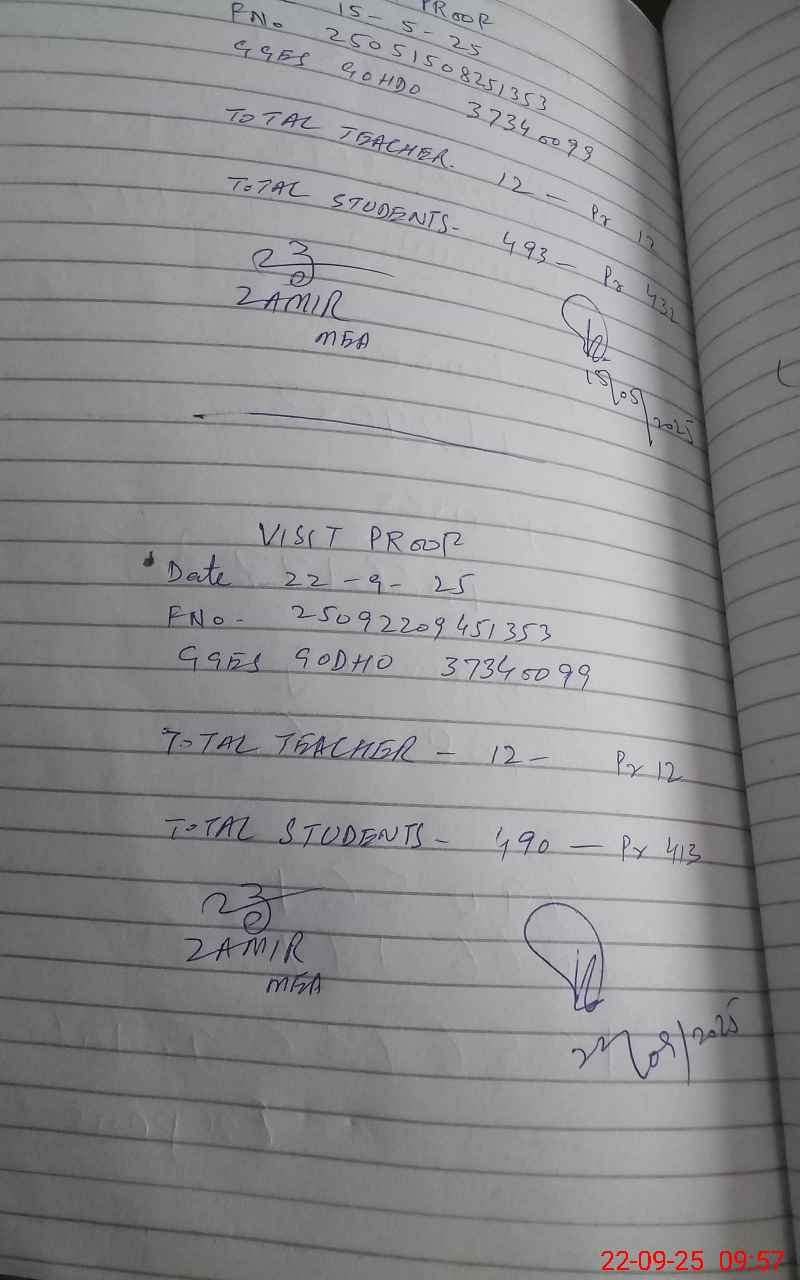 PROOF
15-5-25
FNo. 25051508251353
GGES GOHDO 37340099
TOTAL TEACHER. 12 - Pr 12
TOTAL STUDENTS- 493 - Pr 432
ZAMIR
MEA
15/05/2025
VISIT PROOF
Date 22-9-25
FNo- 25092209451353
GGES GODHO 37340099
TOTAL TEACHER - 12 - Pr 12
TOTAL STUDENTS - 490 - Pr 413
ZAMIR
MEA
22/09/2025
22-09-25 09:57